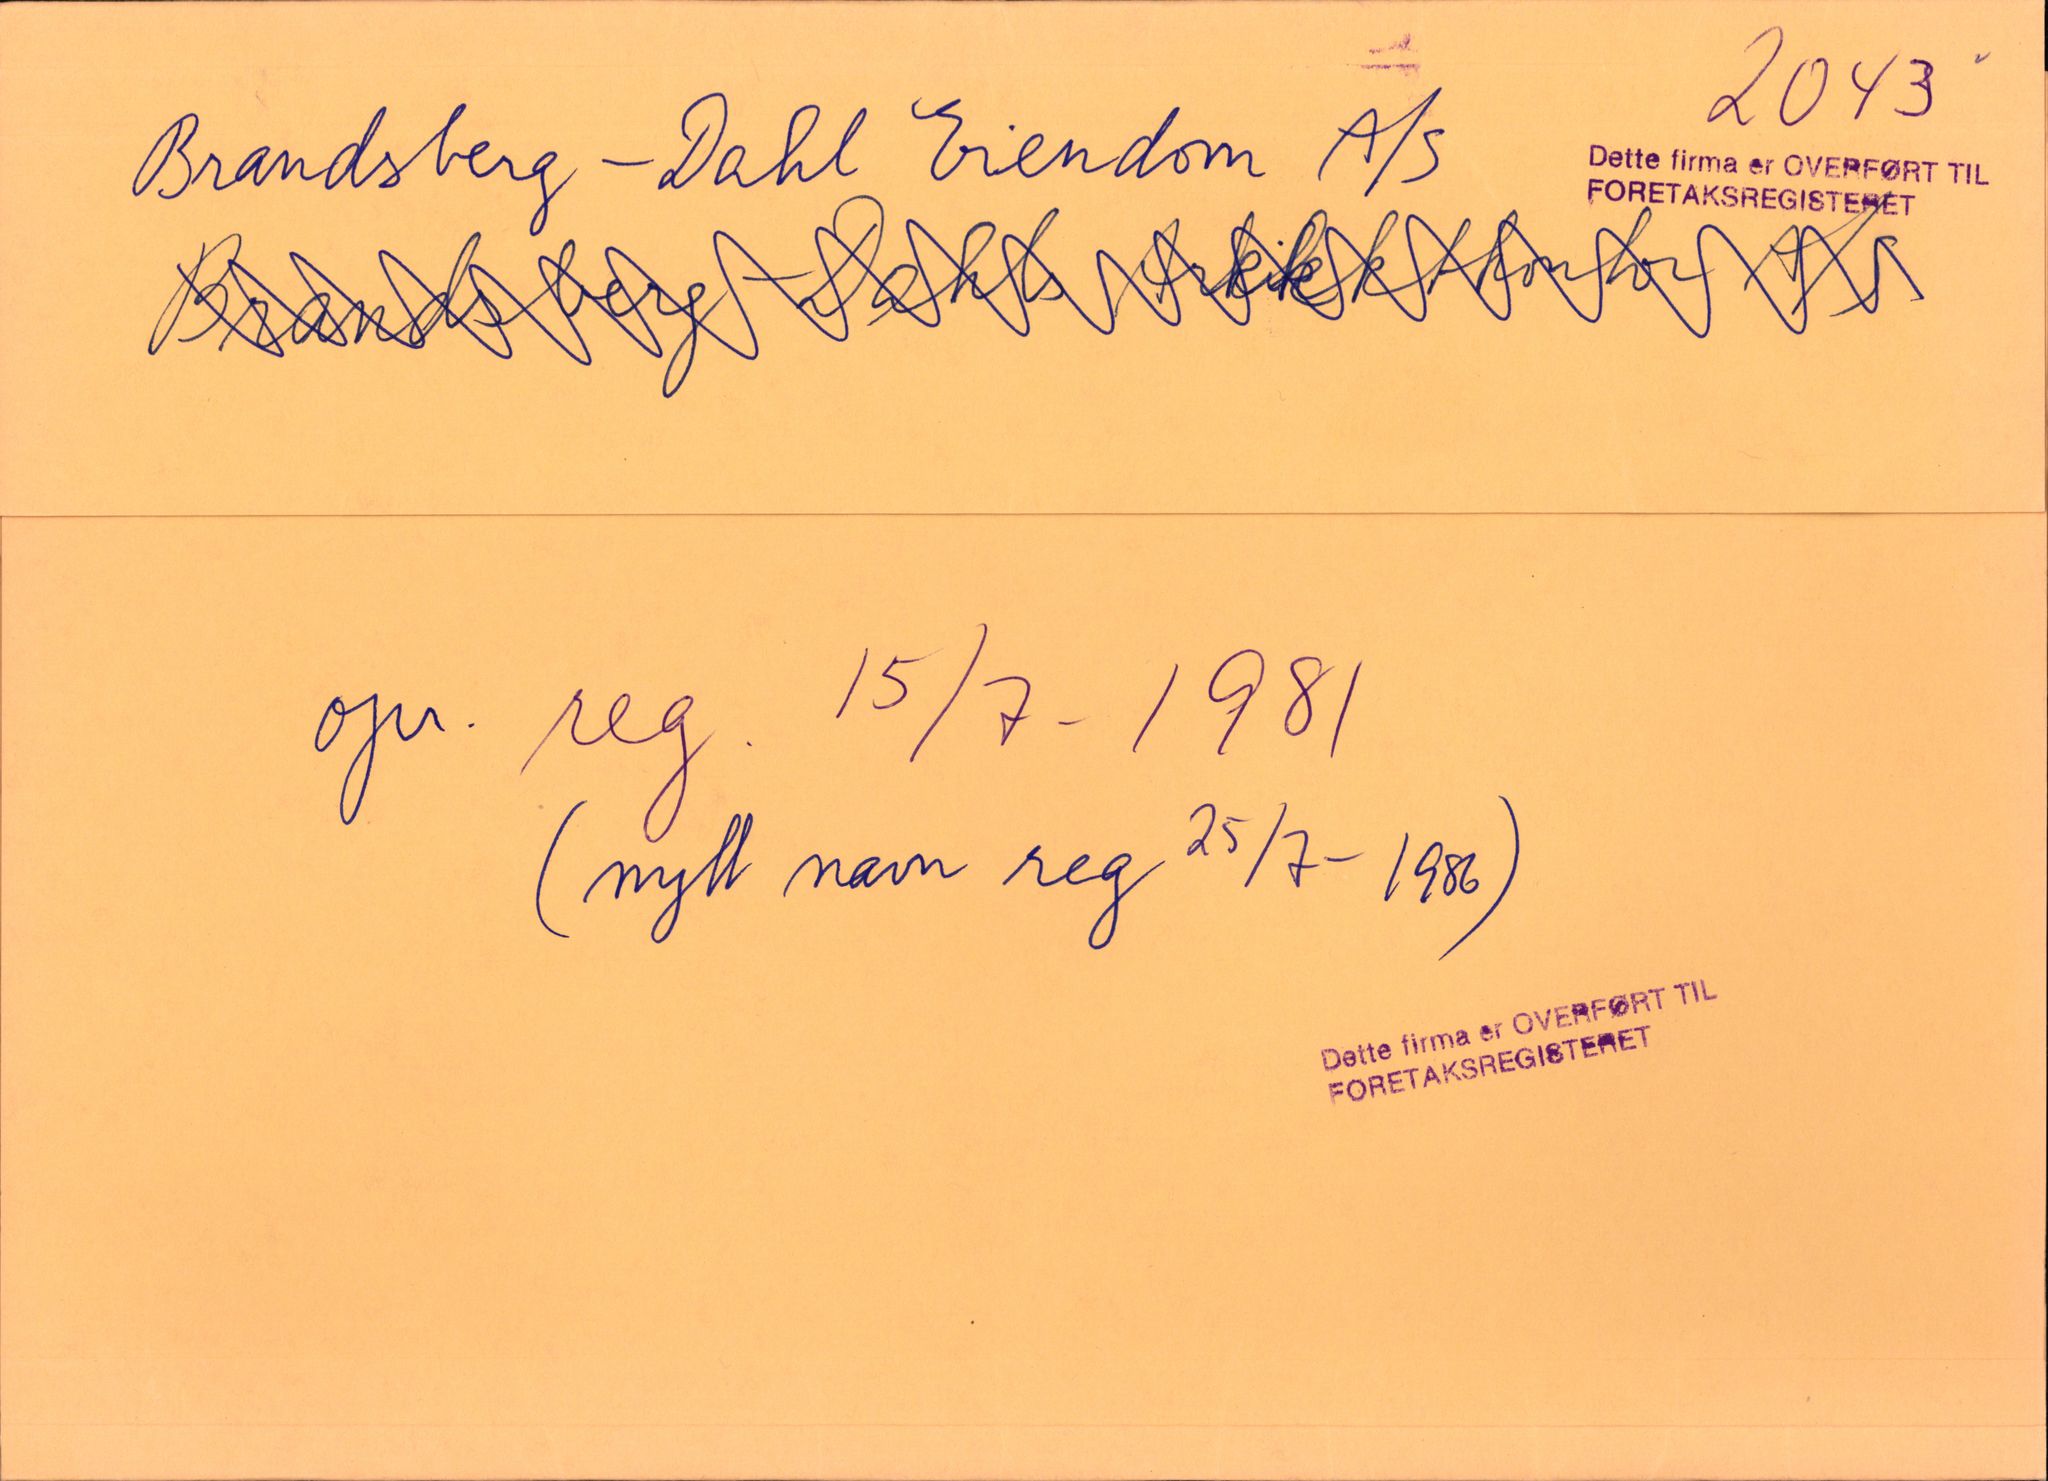 2043
Brandsberg-Dahl Eiendom A/S
Dette firma er OVERFØRT TIL
FORETAKSREGISTERET
Brandsberg-Dahls Arkitektkontor A/S
opr. reg. 15/7-1981
(nytt navn reg 25/7-1986)
Dette firma er OVERFØRT TIL
FORETAKSREGISTERET